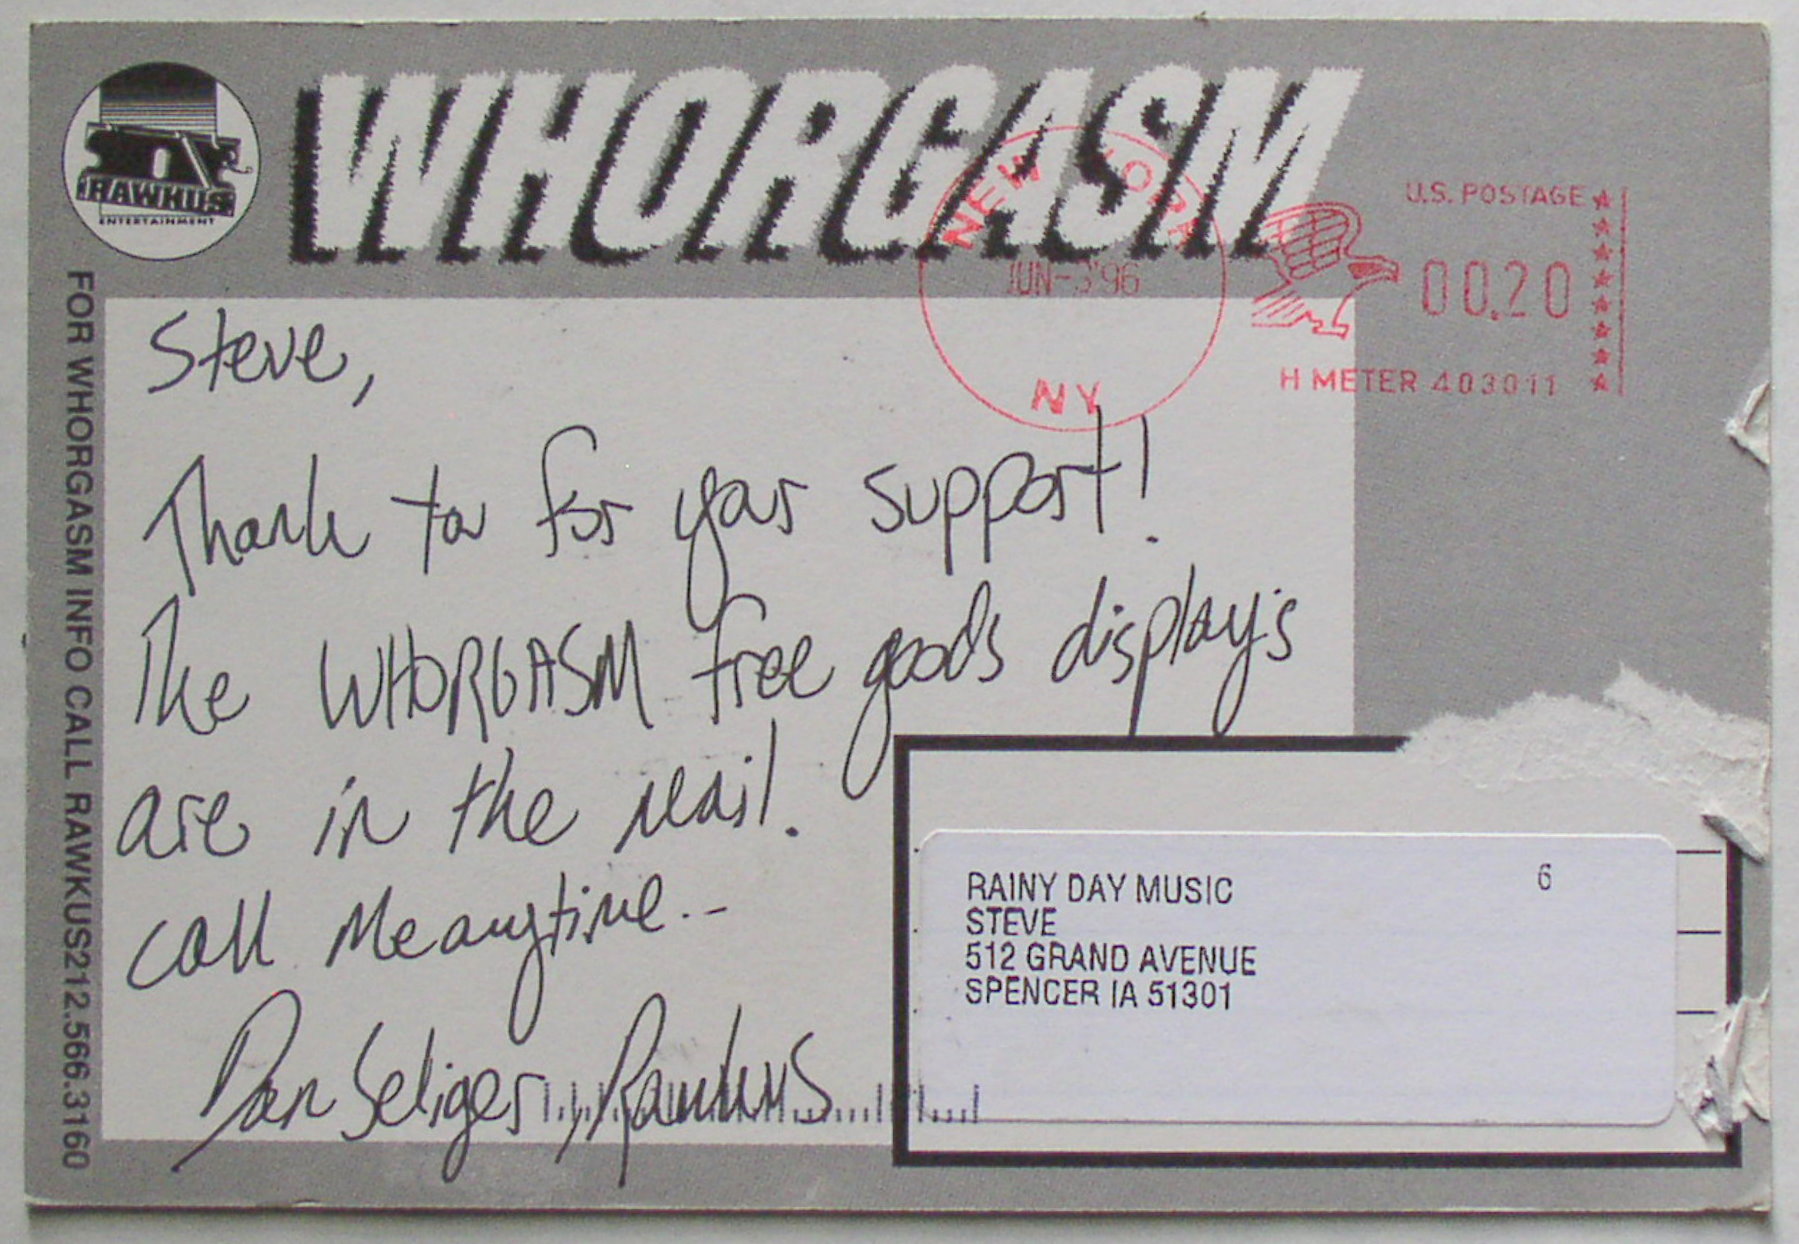 WHORGASM
RAWKUS
ENTERTAINMENT
NEW YORK
JUN-3'96
NY
U.S. POSTAGE
00.20
H METER 403011
FOR WHORGASM INFO CALL RAWKUS212.566.3160
Steve,
Thank you for your support!
The WHORGASM free goods displays
are in the mail.
call Meanytime--
Dan Seliger, Rawkus
RAINY DAY MUSIC 6
STEVE
512 GRAND AVENUE
SPENCER IA 51301